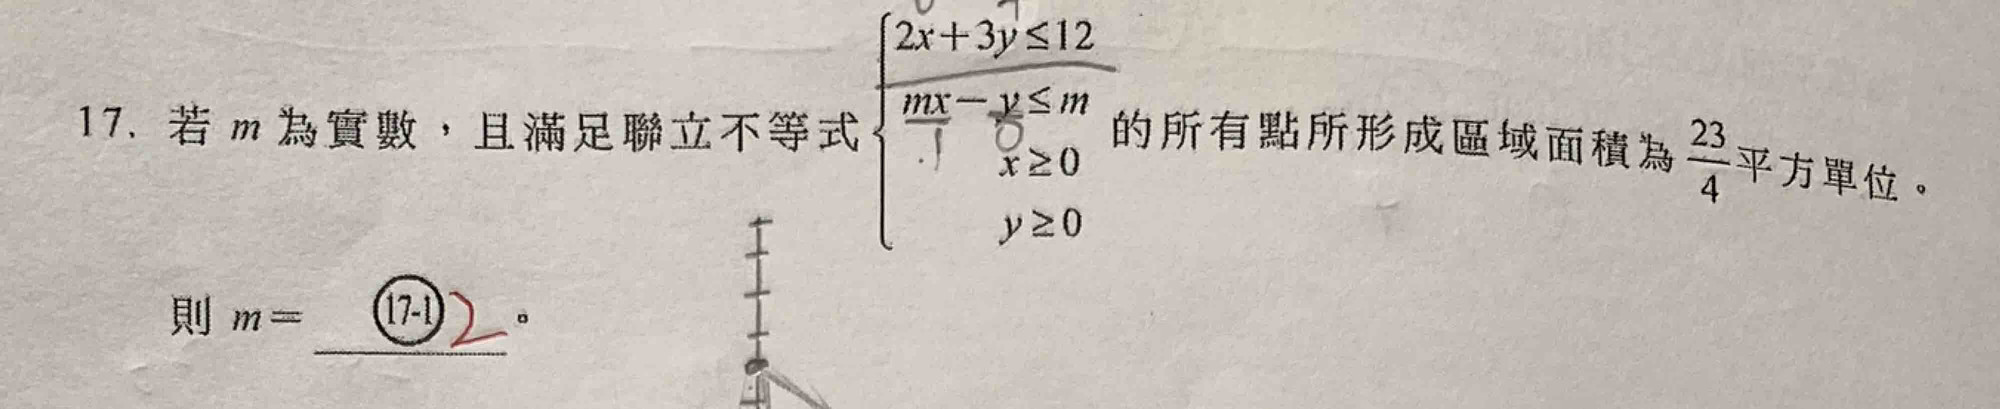 2x+3y≤12
17. 若 m 為實數,且滿足聯立不等式 mx−y≤m 的所有點所形成區域面積為 23/4 平方單位。
x≥0
y≥0
則 m= 17-1 2 。